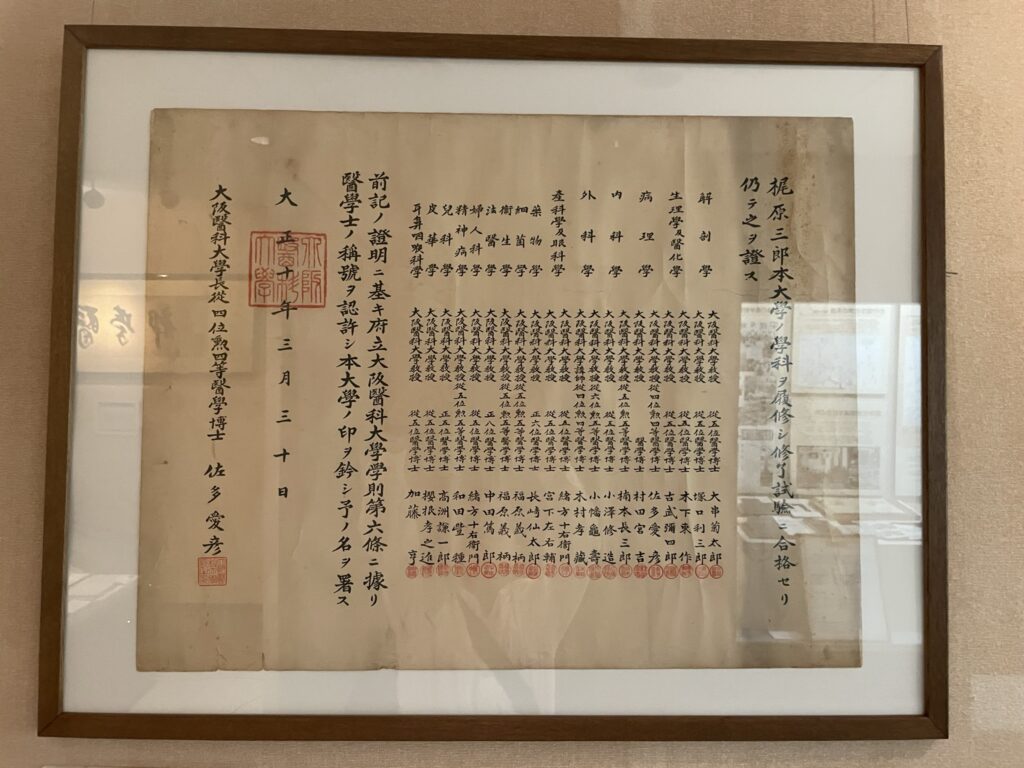 梶原三郎本大學ノ學科ヲ履修シ修了試驗ニ合格セリ
仍テ之ヲ證ス
解剖學
大阪醫科大學教授 從五位醫學博士 大串菊太郎
大阪醫科大學教授 從五位醫學博士 塚口利三郎
生理學及醫化學
大阪醫科大學教授 從五位醫學博士 木下東作
大阪醫科大學教授 從五位醫學博士 古武彌四郎
病理學
大阪醫科大學教授從四位勲四等醫學博士 佐多愛彦
大阪醫科大學教授 醫學博士 村田宮吉
内科學
大阪醫科大學教授從五位勲五等醫學博士 楠本長三郎
大阪醫科大學教授 從五位醫學博士 小澤修造
外科學
大阪醫科大學教授從六位勲五等醫學博士 小幡龜壽
大阪醫科大學講師從四位勲四等醫學博士 木村孝藏
産科學及眼科學
大阪醫科大學教授 從五位醫學博士 緒方十右衛門
大阪醫科大學教授 從五位醫學博士 宮下左右輔
藥物學 大阪醫科大學教授 正六位醫學博士 長崎仙太郎
細菌學 大阪醫科大學教授從五位勲五等醫學博士 福原義柄
衛生學 大阪醫科大學教授從五位勲五等醫學博士 福原義柄
法醫學 大阪醫科大學教授 正八位醫學博士 中田篤郎
婦人科學 大阪醫科大學教授 從五位醫學博士 緒方十右衛門
精神病學 大阪醫科大學教授從五位勲五等醫學博士 和田豐種
兒科學 大阪醫科大學教授 正五位醫學博士 高洲謙一郎
皮黴學 大阪醫科大學教授 從五位醫學博士 櫻根孝之進
耳鼻咽喉科學 大阪醫科大學教授 從五位醫學博士 加藤亨
前記ノ證明ニ基キ府立大阪醫科大學學則第六條ニ據リ
醫學士ノ稱號ヲ認許シ本大學ノ印ヲ鈐シ予ノ名ヲ署ス
大正十年三月三十日
大阪醫科大學
大阪醫科大學長從四位勲四等醫學博士 佐多愛彦